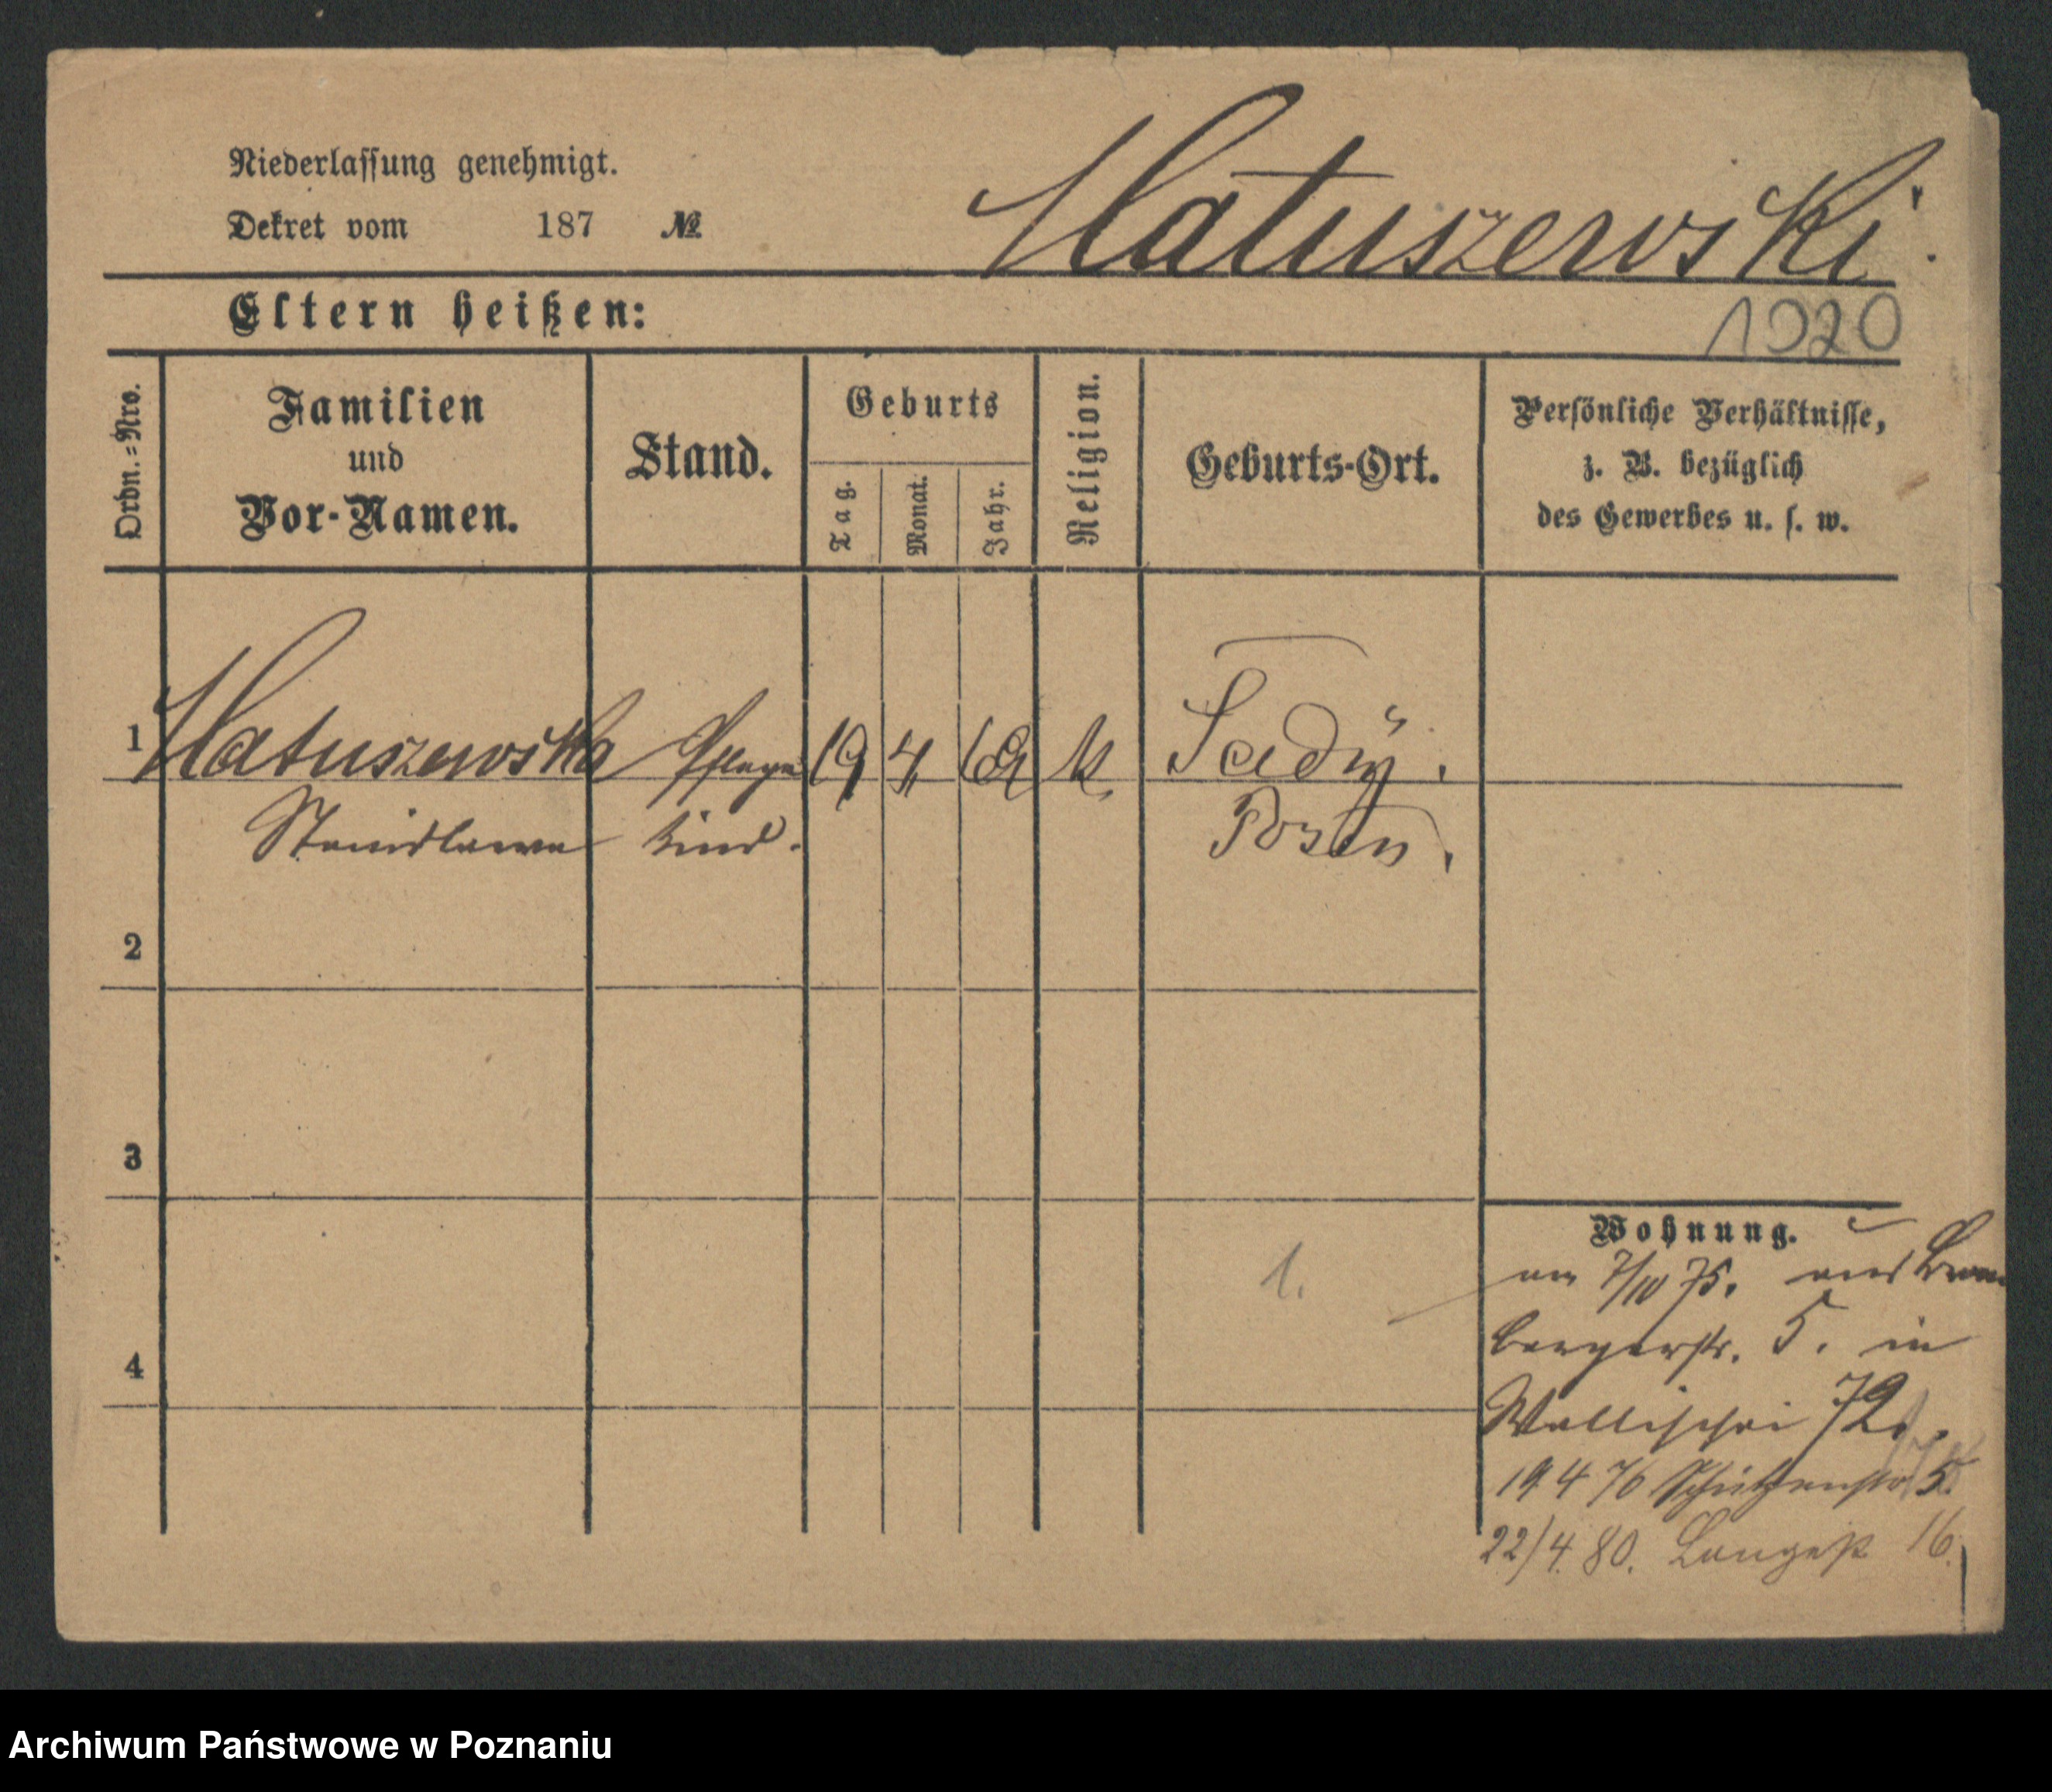 Niederlassung genehmigt.
Dekret vom 187 №
Matuszewski.
Eltern heißen:
1920
Ordn.=Nro.
Familien
und
Vor-Namen.
Stand.
Geburts
Tag.
Monat.
Jahr.
Religion.
Geburts-Ort.
Persönliche Verhältnisse,
z. B. bezüglich
des Gewerbes u. s. w.
1 Matuszewska Pflege 19 4 69 k. Sady.
Stanislawa kind. Posen.
2
3
4
1.
Wohnung.
am 7/10 75. aus Brom
bergerstr. 5. in
Wallischei 72.
19 4 76 Schützenstr 5.
22/4. 80. Langestr 16.
Archiwum Państwowe w Poznaniu